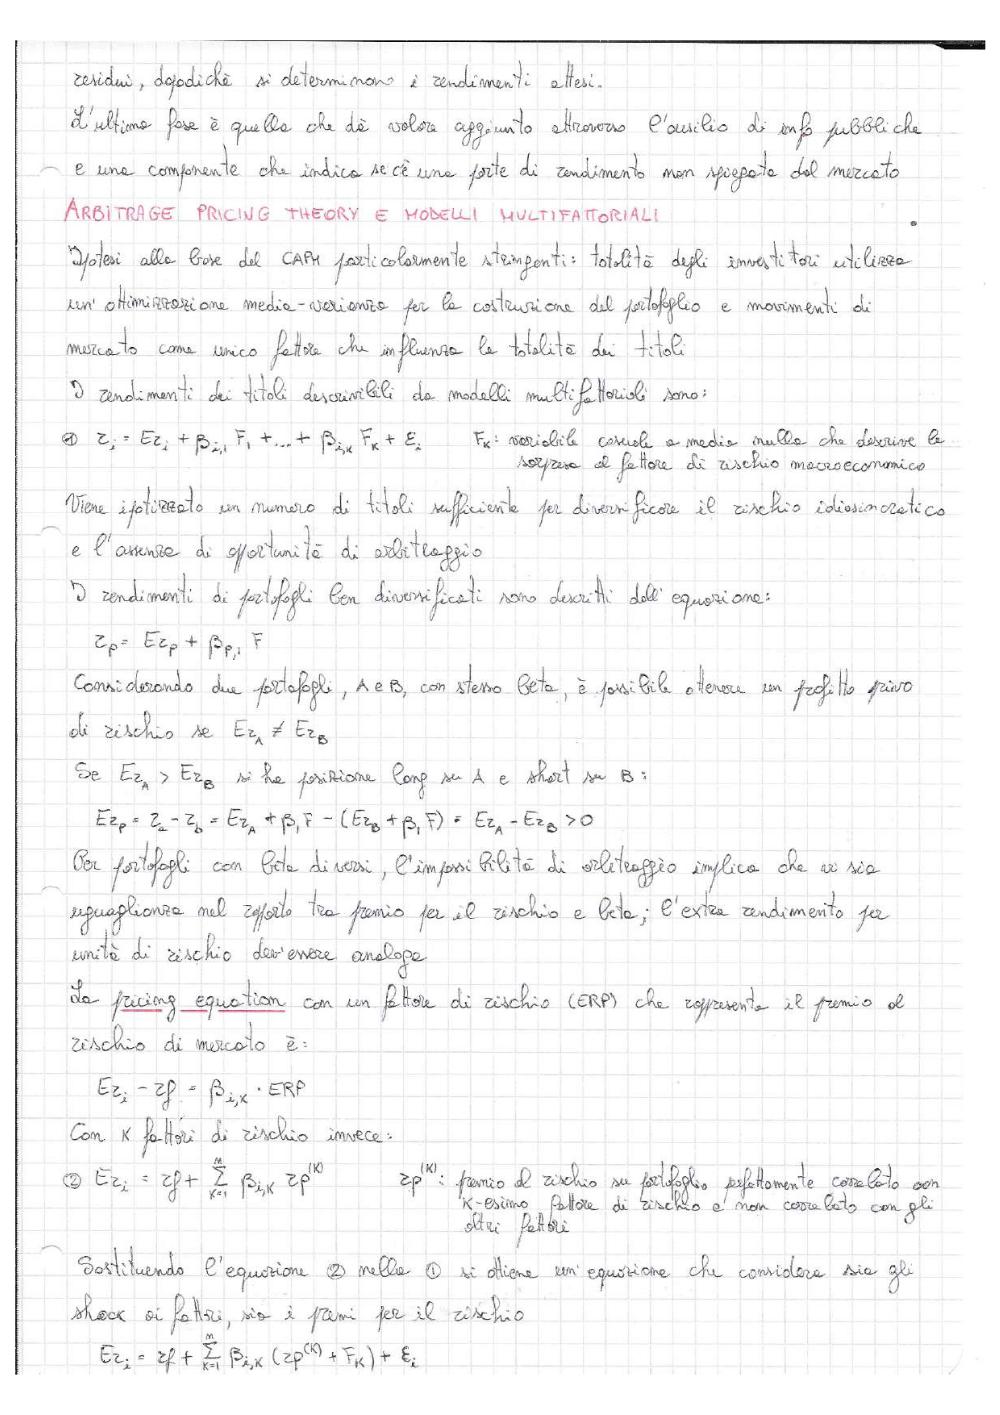 residui, dopodichè si determinano i rendimenti attesi.
L'ultima fase è quella che dà valore aggiunto attraverso l'ausilio di info pubbliche
e una componente che indica se c'è una parte di rendimento non spiegata dal mercato
ARBITRAGE PRICING THEORY E MODELLI MULTIFATTORIALI
Ipotesi alla base del CAPM particolarmente stringenti: totalità degli investitori utilizza
un'ottimizzazione media-varianza per la costruzione del portafoglio e movimenti di
mercato come unico fattore che influenza la totalità dei titoli
I rendimenti dei titoli descrivibili da modelli multifattoriali sono:
① r_i = Er_i + β_{i,1} F_1 + ... + β_{i,K} F_K + ε_i F_K: variabile casuale a media nulla che descrive la
sorpresa al fattore di rischio macroeconomico
Viene ipotizzato un numero di titoli sufficiente per diversificare il rischio idiosincratico
e l'assenza di opportunità di arbitraggio
I rendimenti di portafogli ben diversificati sono descritti dall'equazione:
r_p = Er_p + β_{p,1} F
Considerando due portafogli, A e B, con stesso beta, è possibile ottenere un profitto privo
di rischio se Er_A ≠ Er_B
Se Er_A > Er_B si ha posizione long su A e short su B:
Er_p = r_a - r_b = Er_A + β_1 F - (Er_B + β_1 F) = Er_A - Er_B > 0
Per portafogli con beta diversi, l'impossibilità di arbitraggio implica che vi sia
uguaglianza nel rapporto tra premio per il rischio e beta; l'extra rendimento per
unità di rischio dev'essere analoga
La pricing equation con un fattore di rischio (ERP) che rappresenta il premio al
rischio di mercato è:
Er_i - rf = β_{i,K} · ERP
Con K fattori di rischio invece:
② Er_i = rf + Σ_{K=1}^{M} β_{i,K} rp^{(K)} rp^{(K)}: premio al rischio su portafoglio perfettamente correlato con
K-esimo fattore di rischio e non correlato con gli
altri fattori
Sostituendo l'equazione ② nella ① si ottiene un'equazione che considera sia gli
shock ai fattori, sia i premi per il rischio
Er_i = rf + Σ_{K=1}^{M} β_{i,K} (rp^{(K)} + F_K) + ε_i